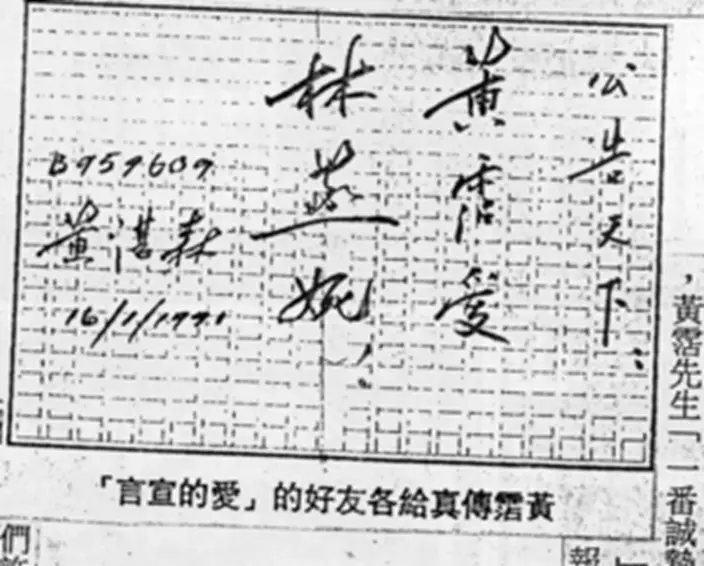 公告天下：
黃霑愛
林燕妮！
B959609
黃湛森
16/1/1991
黃霑傳真給各友好的「愛的宣言」
，黃霑先生「一番誠摯
報
們